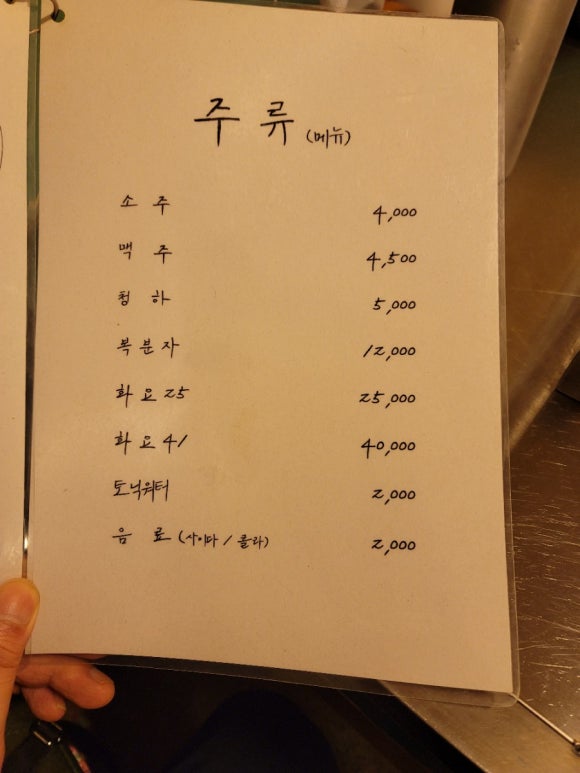 주 류 (메뉴)
소 주 4,000
맥 주 4,500
청 하 5,000
복 분 자 12,000
화 요 25 25,000
화 요 41 40,000
토닉워터 2,000
음 료 (사이다 / 콜라) 2,000